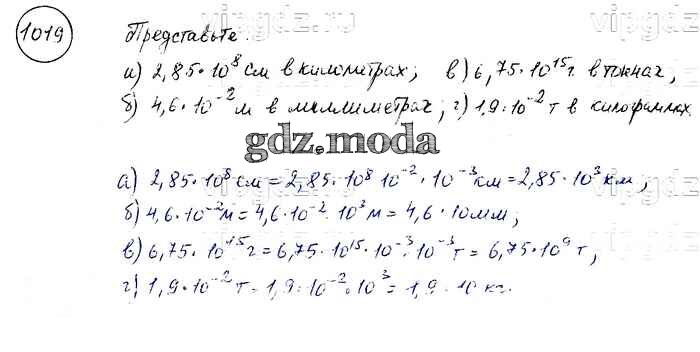 1019 Представьте.
а) 2,85·10⁸ см в километрах; в) 6,75·10¹⁵ г в тоннах,
б) 4,6·10⁻² м в миллиметрах; г) 1,9·10⁻² т в килограммах
gdz.moda
а) 2,85·10⁸ см = 2,85·10⁸ 10⁻²·10⁻³ км = 2,85·10³ км,
б) 4,6·10⁻² м = 4,6·10⁻²·10³ м = 4,6·10 мм;
в) 6,75·10¹⁵ г = 6,75·10¹⁵·10⁻³·10⁻³ т = 6,75·10⁹ т,
г) 1,9·10⁻² т = 1,9·10⁻²·10³ = 1,9·10 кг.
vipgdz.ru
vipgdz.ru
vipgdz.ru
vipgdz.ru